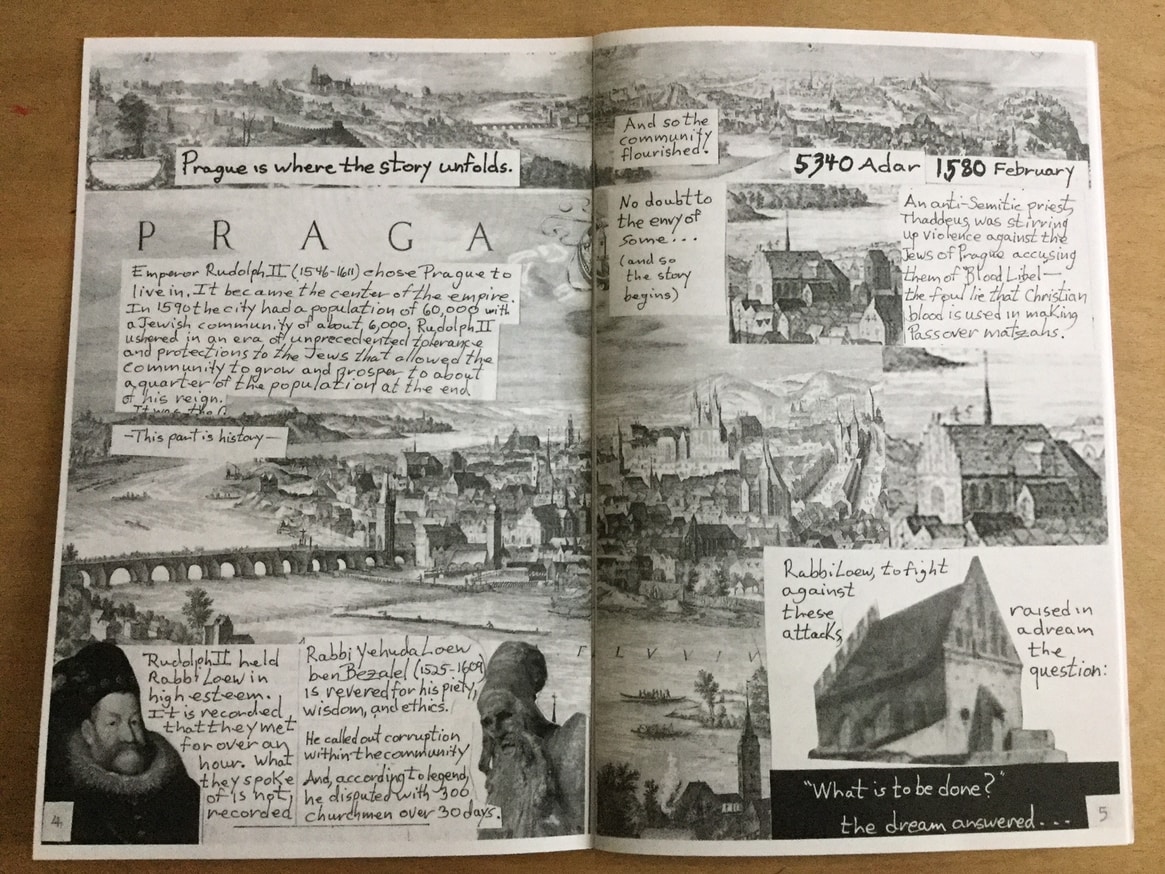 Prague is where the story unfolds.
PRAGA
Emperor Rudolph II (1546-1611) chose Prague to
live in. It became the center of the empire.
In 1590 the city had a population of 60,000 with
a Jewish community of about 6,000. Rudolph II
ushered in an era of unprecedented tolerance
and protections to the Jews that allowed the
community to grow and prosper to about
a quarter of the population at the end
of his reign.
It was the
-This part is history-
Rudolph II held
Rabbi Loew in
high esteem.
It is recorded
that they met
for over an
hour. What
they spoke
of is not
recorded
Rabbi Yehuda Loew
ben Bezalel (1525-1609)
is revered for his piety,
wisdom, and ethics.
He called out corruption
within the community
And, according to legend,
he disputed with 300
churchmen over 30 days.
4
And so the
community
flourished.
5340 Adar 1580 February
No doubt to
the envy of
some...
(and so
the story
begins)
An anti-Semitic priest,
Thaddeus, was stirring
up violence against the
Jews of Prague accusing
them of "Blood Libel—
the foul lie that Christian
blood is used in making
Passover matzahs.
Rabbi Loew, to fight
against
these
attacks,
raised in
a dream
the
question:
FLUVIV
"What is to be done?"
the dream answered...
5